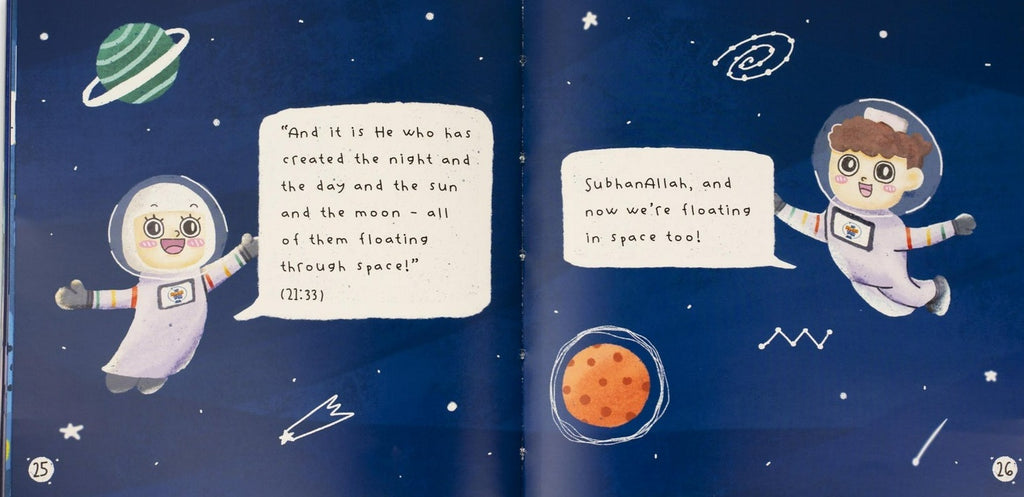 "And it is He who has
created the night and
the day and the sun
and the moon - all
of them floating
through space!"
(21:33)
SubhanAllah, and
now we're floating
in space too!
25
26